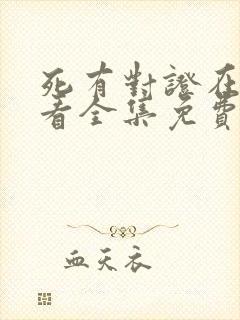 死有對證在
看全集免費
血天衣